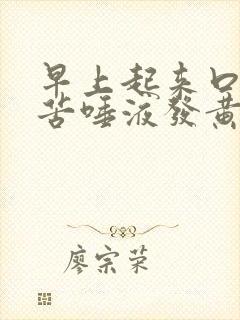 早上起来口
苦唾液發黄
廖宗荣